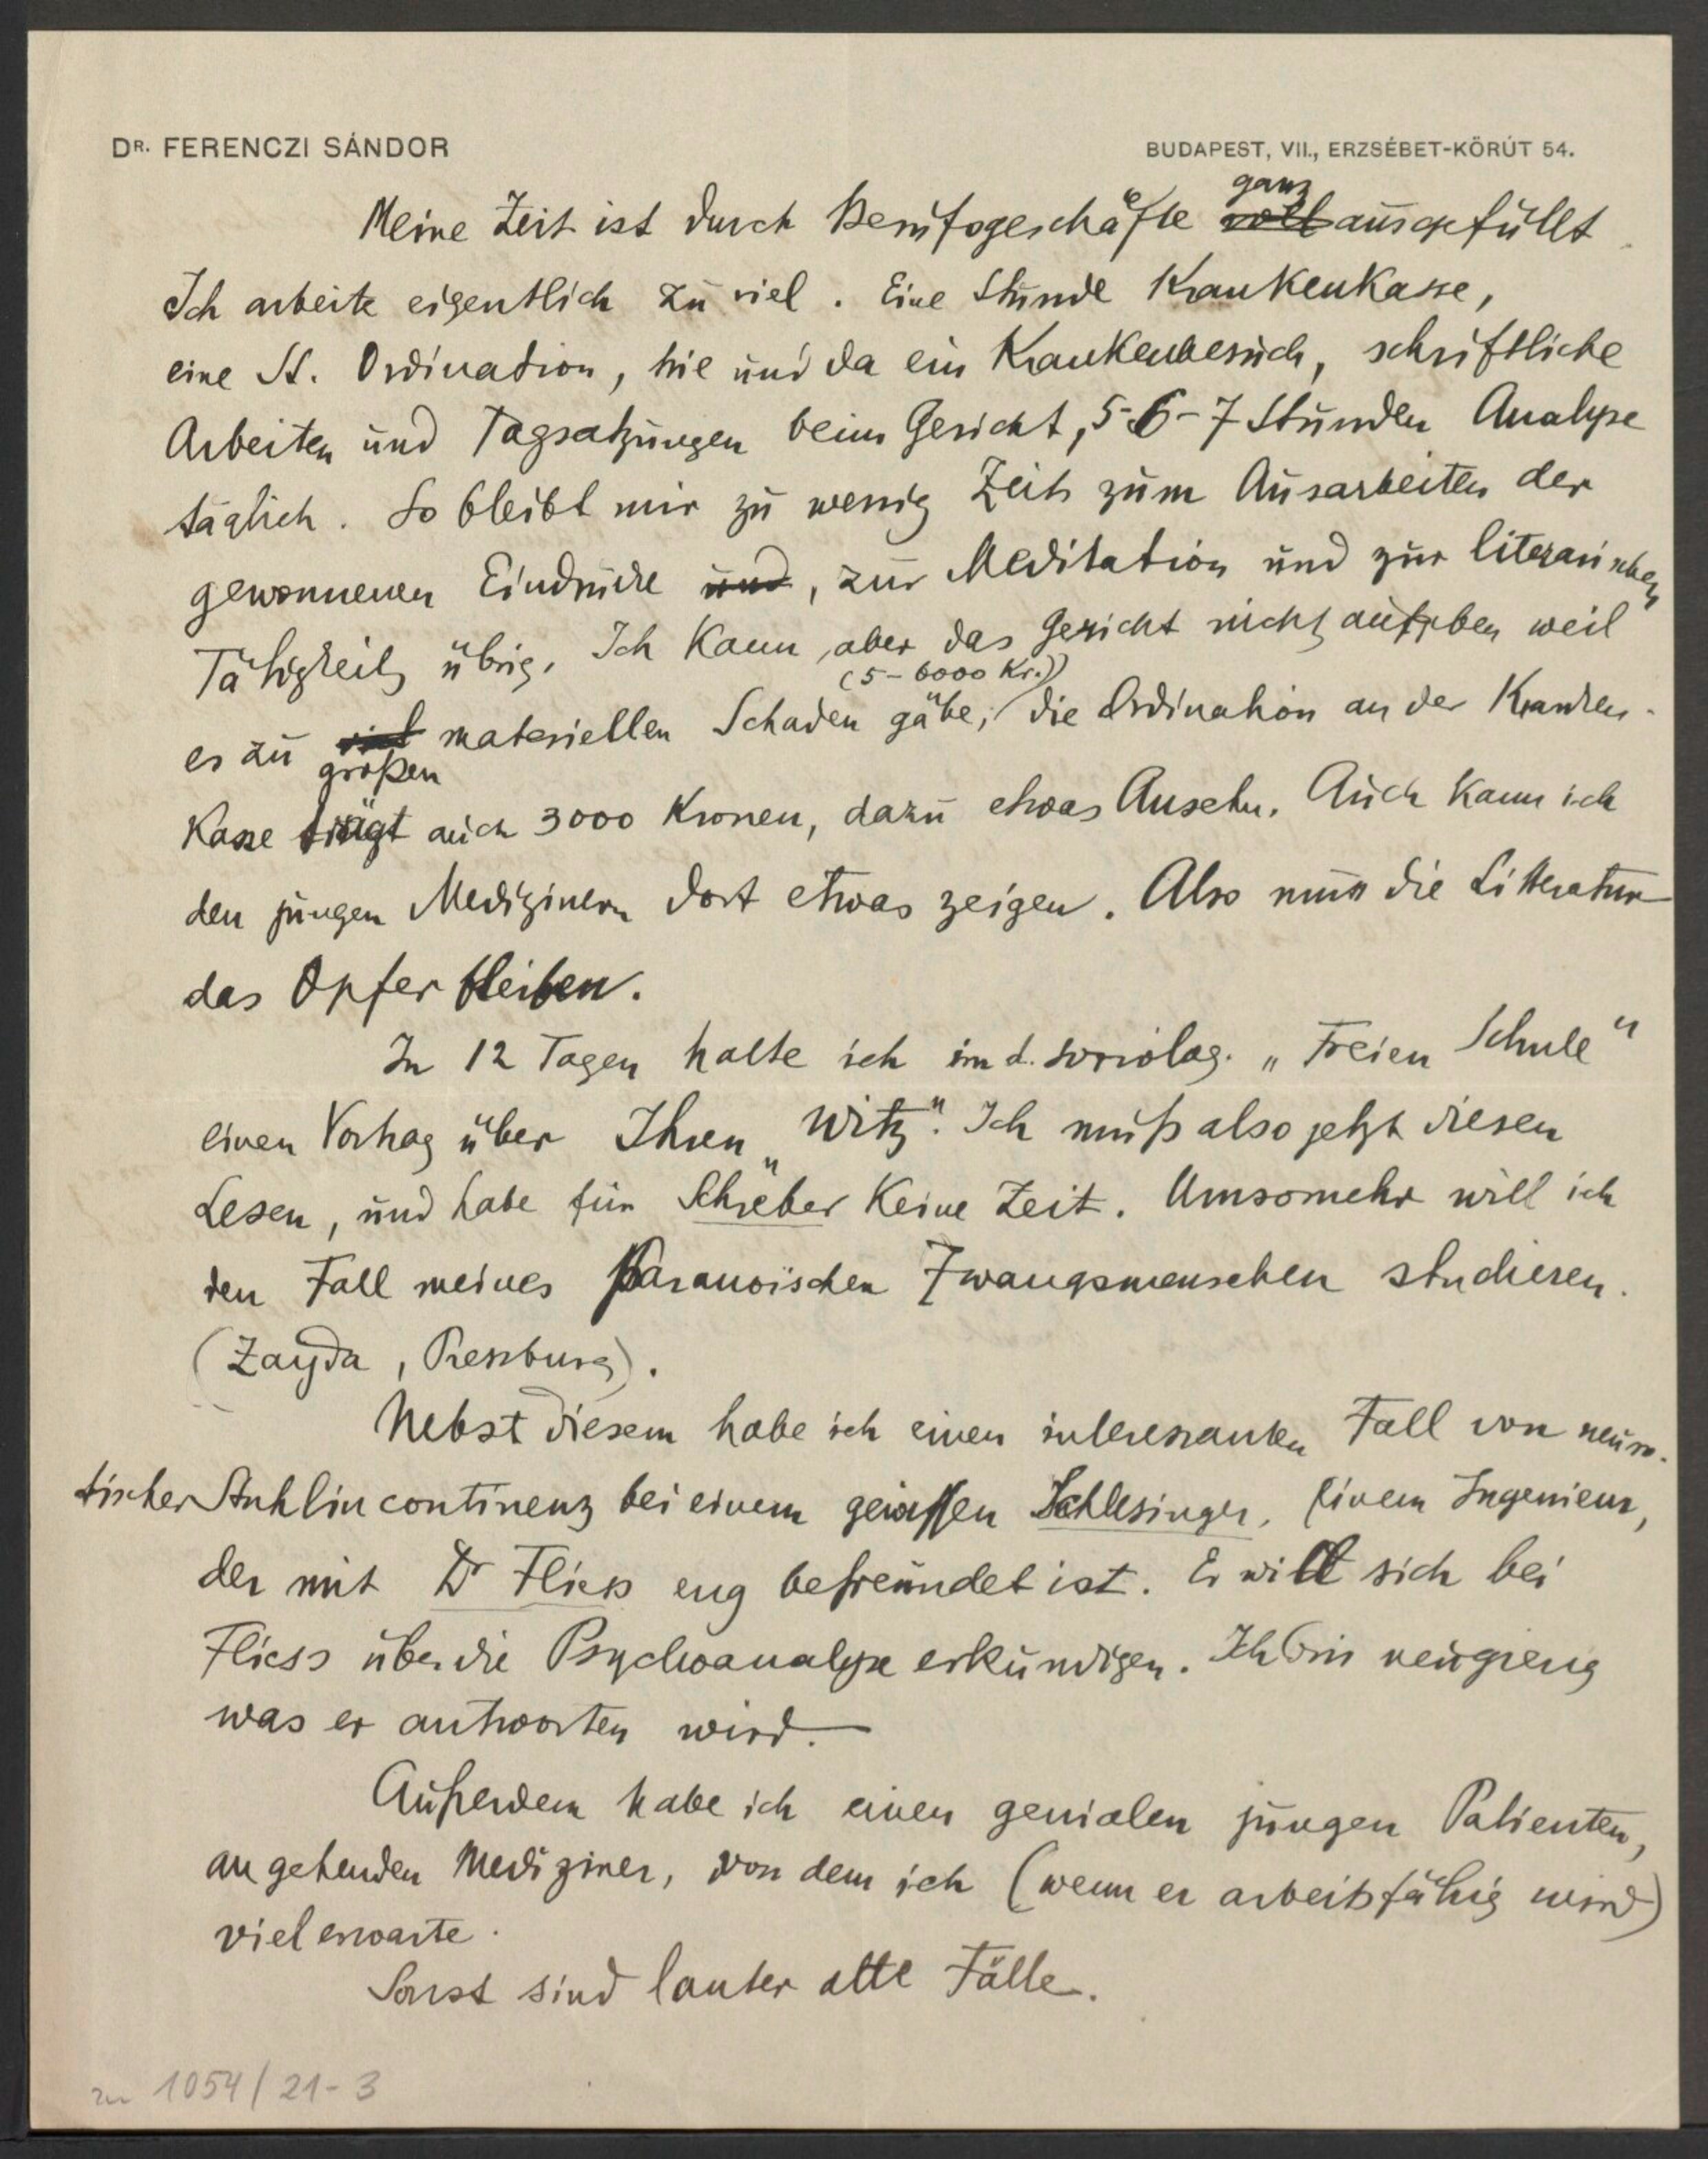 DR. FERENCZI SÁNDOR
BUDAPEST, VII., ERZSÉBET-KÖRÚT 54.
ganz
Meine Zeit ist durch Berufsgeschäfte voll ausgefüllt.
Ich arbeite eigentlich zu viel. Eine Stunde Krankenkasse,
eine St. Ordination, hie und da ein Krankenbesuch, schriftliche
Arbeiten und Tagsatzungen beim Gericht, 5-6-7 Stunden Analyse
täglich. So bleibt mir zu wenig Zeit zum Ausarbeiten der
gewonnenen Eindrücke und, zur Meditation und zur literarischen
Tätigkeit übrig. Ich kann aber das Gericht nicht aufgeben weil
(5-6000 Kr.)
es zu viel materiellen Schaden gäbe; die Ordination an der Kranken-
großen
kasse trägt auch 3000 Kronen, dazu etwas Ansehn. Auch kann ich
den jungen Medizinern dort etwas zeigen. Also muss die Litteratur
das Opfer bleiben.
In 12 Tagen halte ich in d. soziolog. „Freien Schule"
einen Vortrag über Ihren „Witz". Ich muß also jetzt diesen
Lesen, und habe für Schreber keine Zeit. Umsomehr will ich
den Fall meines paranoischen Zwangsmenschen studieren.
(Zayda, Pressburg).
Nebst diesem habe ich einen interessanten Fall von neuro-
tischer Stuhlincontinenz bei einem gewissen Schlesinger, einem Ingenieur,
der mit Dr Fliess eng befreundet ist. Er will sich bei
Fliess über die Psychoanalyse erkundigen. Ich bin neugierig
was er antworten wird.—
Außerdem habe ich einen genialen jungen Patienten,
angehenden Mediziner, von dem ich (wenn er arbeitsfähig wird)
viel erwarte.
Sonst sind lauter alte Fälle.
zu 1054/21-3